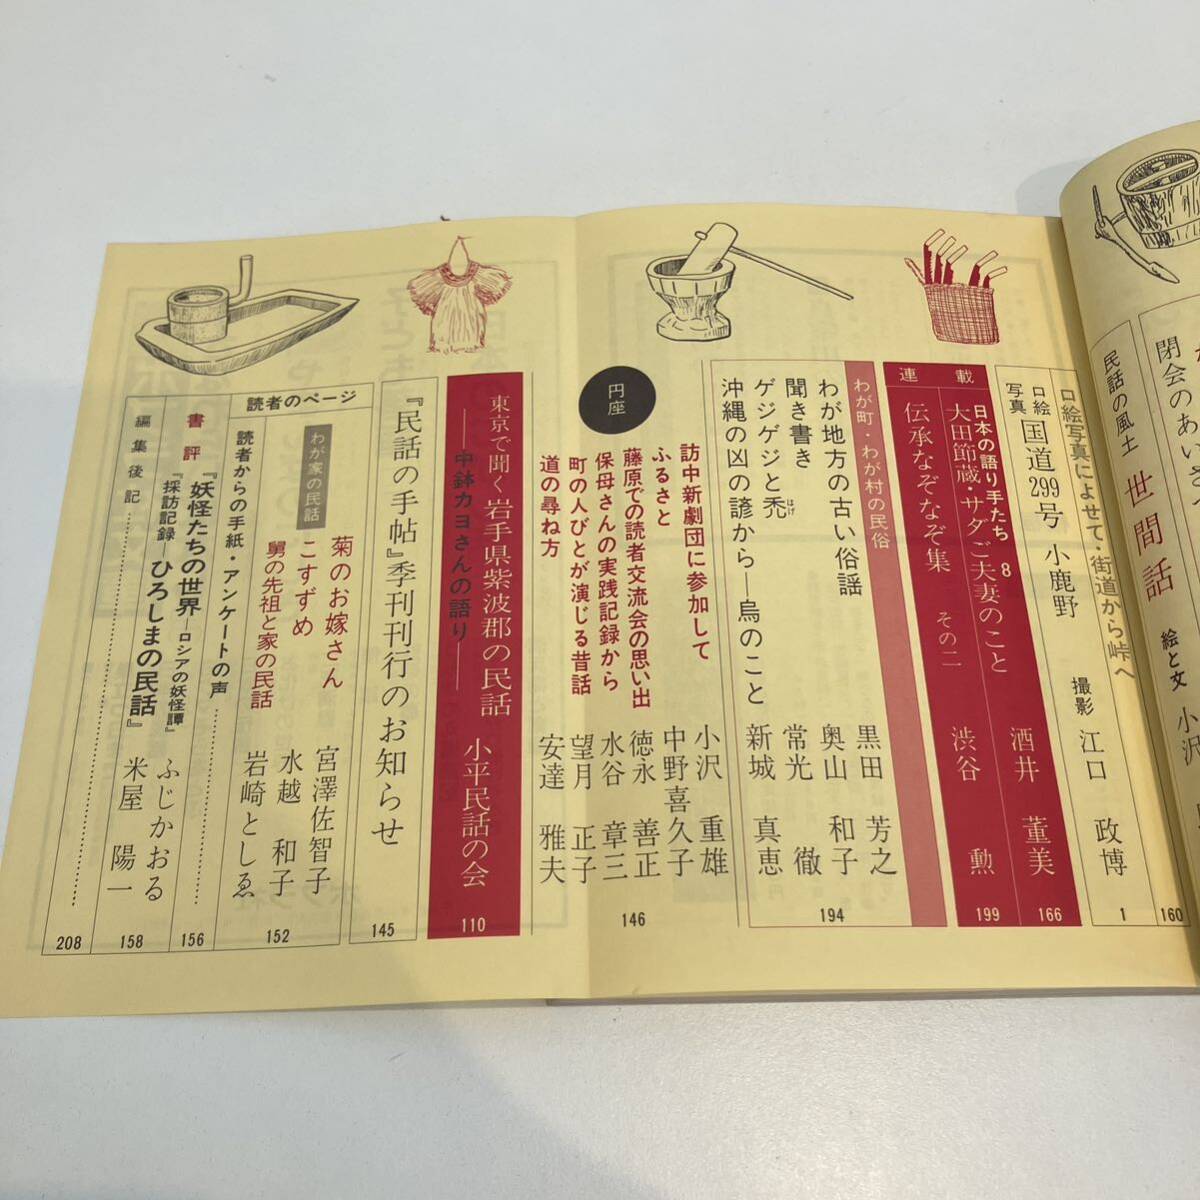 閉会のあいさ
民話の風土 世間話 絵と文 小沢
160
口絵写真によせて・街道から峠へ
口絵写真 国道299号 小鹿野 撮影 江口 政博
1
連載
日本の語り手たち 8
大田節蔵・サダご夫妻のこと 酒井 董美
166
伝承なぞなぞ集 その二 渋谷 勲
199
わが町・わが村の民俗
わが地方の古い俗謡 黒田 芳之
聞き書き 奥山 和子
ゲジゲジと禿 常光 徹
はげ
沖縄の凶の諺から―烏のこと 新城 真恵
194
円座
訪中新劇団に参加して 小沢 重雄
ふるさと 中野喜久子
藤原での読者交流会の思い出 徳永 善正
保母さんの実践記録から 水谷 章三
町の人びとが演じる昔話 望月 正子
道の尋ね方 安達 雅夫
146
東京で聞く岩手県紫波郡の民話 小平民話の会
―中鉢カヨさんの語り―
110
『民話の手帖』季刊刊行のお知らせ
145
読者のページ
わが家の民話
菊のお嫁さん 宮澤佐智子
こすずめ 水越 和子
舅の先祖と家の民話 岩崎としゑ
読者からの手紙・アンケートの声
152
書評
『妖怪たちの世界―ロシアの妖怪譚』 ふじかおる
156
『採訪記録―ひろしまの民話』 米屋 陽一
158
編集後記
208